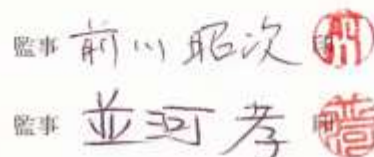 監事 前川昭次 印
監事 並河孝 印